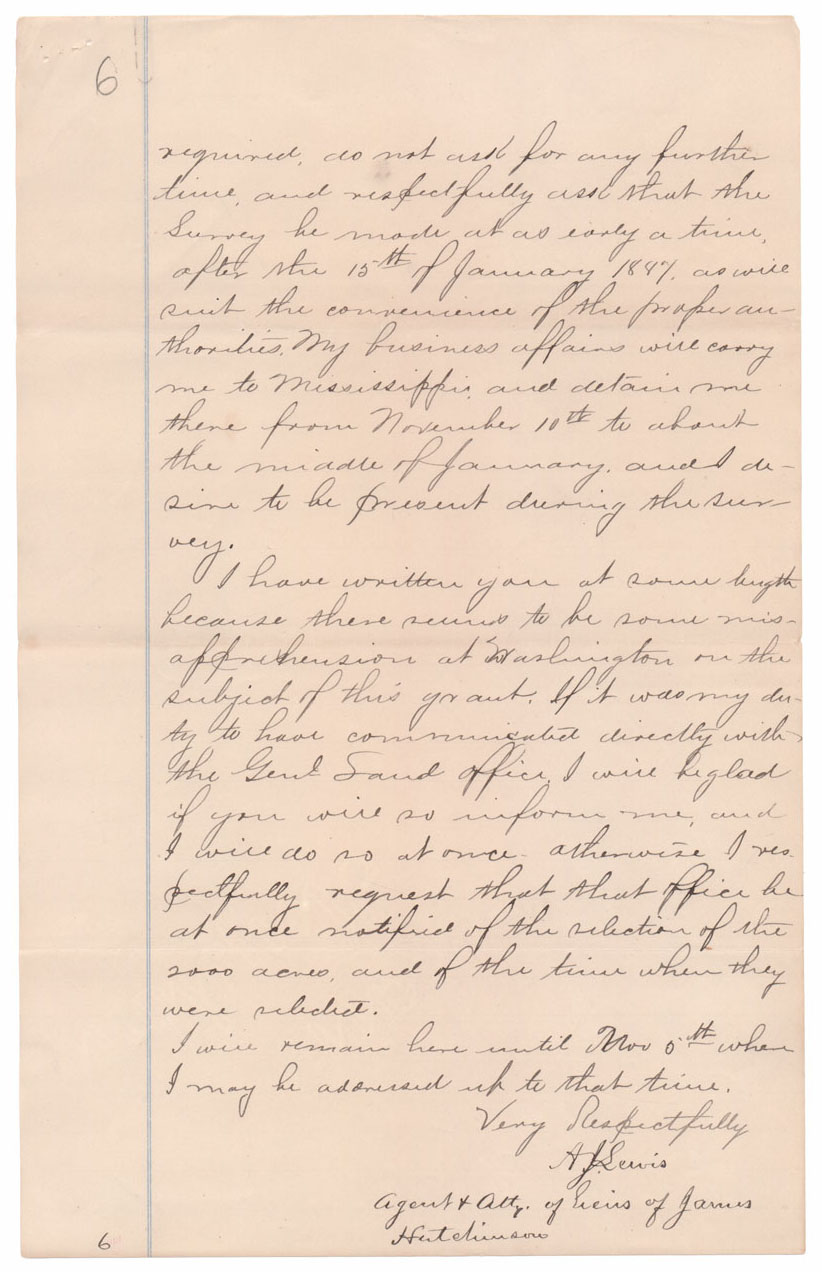 6
required, do not ask for any further
time, and respectfully ask that the
Survey be made at as early a time,
after the 15th of January 1887, as will
suit the convenience of the proper au-
thorities. My business affairs will carry
me to Mississippi, and detain me
there from November 10th to about
the middle of January, and I de-
sire to be present during the sur-
vey.
I have written you at some length
because there seems to be some mis-
apprehension at Washington on the
subject of this grant. If it was my du-
ty to have communicated directly with
the Genl Land office, I will be glad
if you will so inform me, and
I will do so at once. otherwise I res-
pectfully request that that office be
at once notified of the selection of the
2000 acres, and of the time when they
were selected.
I will remain here until Nov 5th where
I may be addressed up to that time.
Very Respectfully
A J Lewis
Agent & Atty. of heirs of James
Hutchinson
6